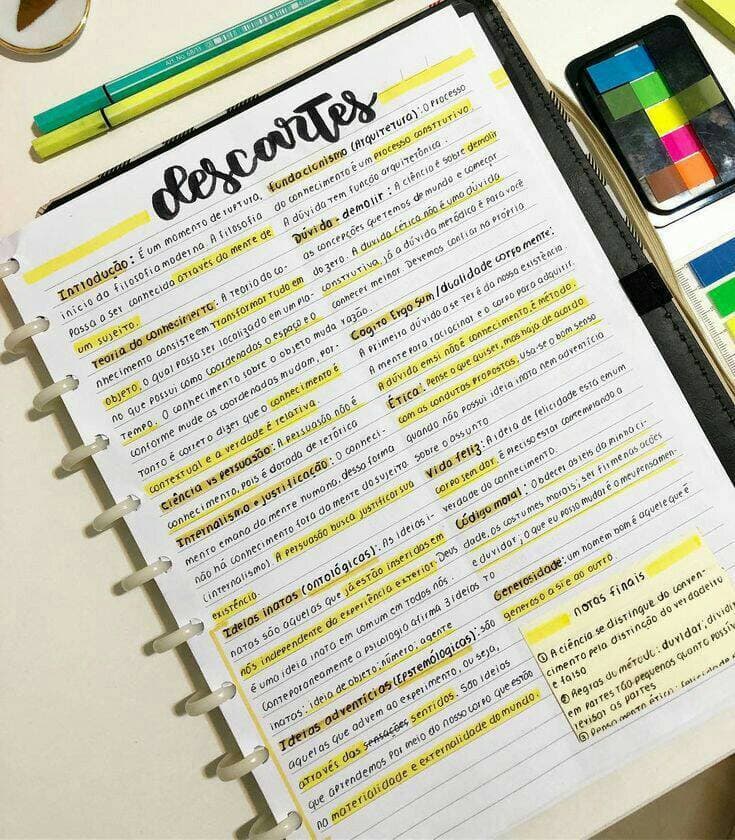 Art. No 68/33
descartes
Introdução: É um momento de ruptura,
início da filosofia moderna. A filosofia
passa a ser conhecida através da mente de
um sujeito.
Teoria do conhecimento: A teoria do co-
nhecimento consiste em transformar tudo em
objeto, o qual possa ser localizado em um pla-
no que possui como coordenadas o espaço e o
tempo. O conhecimento sobre o objeto muda
conforme mude as coordenadas mudam, por-
tanto é correto dizer que o conhecimento é
contextual e a verdade é relativa.
Ciência vs persuasão: A persuasão não é
conhecimento, pois é dotada de retórica
Internalismo e justificação: O conheci-
mento emana da mente humana, dessa forma
não há conhecimento fora da mente do sujeito
(internalismo). A persuasão busca justificar sua
existência.
Ideias inatas (ontológicas): As ideias i-
natas são aquelas que já estão inseridas em
nós independente da experiência exterior. Deus
é uma ideia inata em comum em todos nós.
Contemporaneamente a psicologia afirma 3 ideias
inatas: ideia de objeto, número, agente
Ideias adventícias (Epstemólogicas): são
aquelas que advem ao experimento, ou seja,
através das sensações sentidos. São ideias
que aprendemos por meio do nosso corpo que estão
na materialidade e externalidade do mundo.
fundacionismo (Arquitetura): O processo
do conhecimento é um processo construtivo.
A dúvida tem função arquitetônica.
Dúvida - demolir: A ciência é sobre demolir
as concepções que temos de mundo e começar
do zero. A duvida cética não é uma dúvida
construtiva, já a dúvida metódica é para você
conhecer melhor. Devemos confiar na própria
razão.
Cogito Ergo Sum/dualidade corpo mente:
A primeira dúvida a se ter é da nossa existência.
A mente para raciocinar e o corpo para adquirir.
A dúvida em si não é conhecimento, é método.
Ética: Pense o que quiser, mas haja de acordo
com as condutas propostas, usa-se o bom senso
quando não possui ideia inata nem adventícia
sobre o assunto
Vida feliz: A ideia de felicidade esta em um
corpo sem dor. É preciso estar contemplando a
verdade do conhecimento.
Código moral: Obdecer as leis da minha ci-
dade, os costumes morais; ser firme nas ações
e duvidar; o que eu posso mudar é o meu pensamen-
Generosidade: um nomem bom é aquele que é
generoso a si e ao outro
notas finais
① A ciência se distingue do conven-
cimento pela distinção do verdadeiro
e falso
② Regras do método: duvidar; dividir
em partes tão pequenas quanto possív
revisar as partes
③ Pensamento ético: felicidade